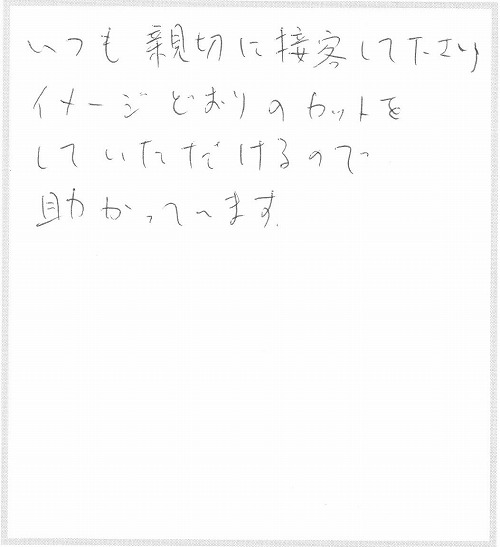 いつも親切に接客して下さり
イメージどおりのカットを
していただけるので
助かっています.